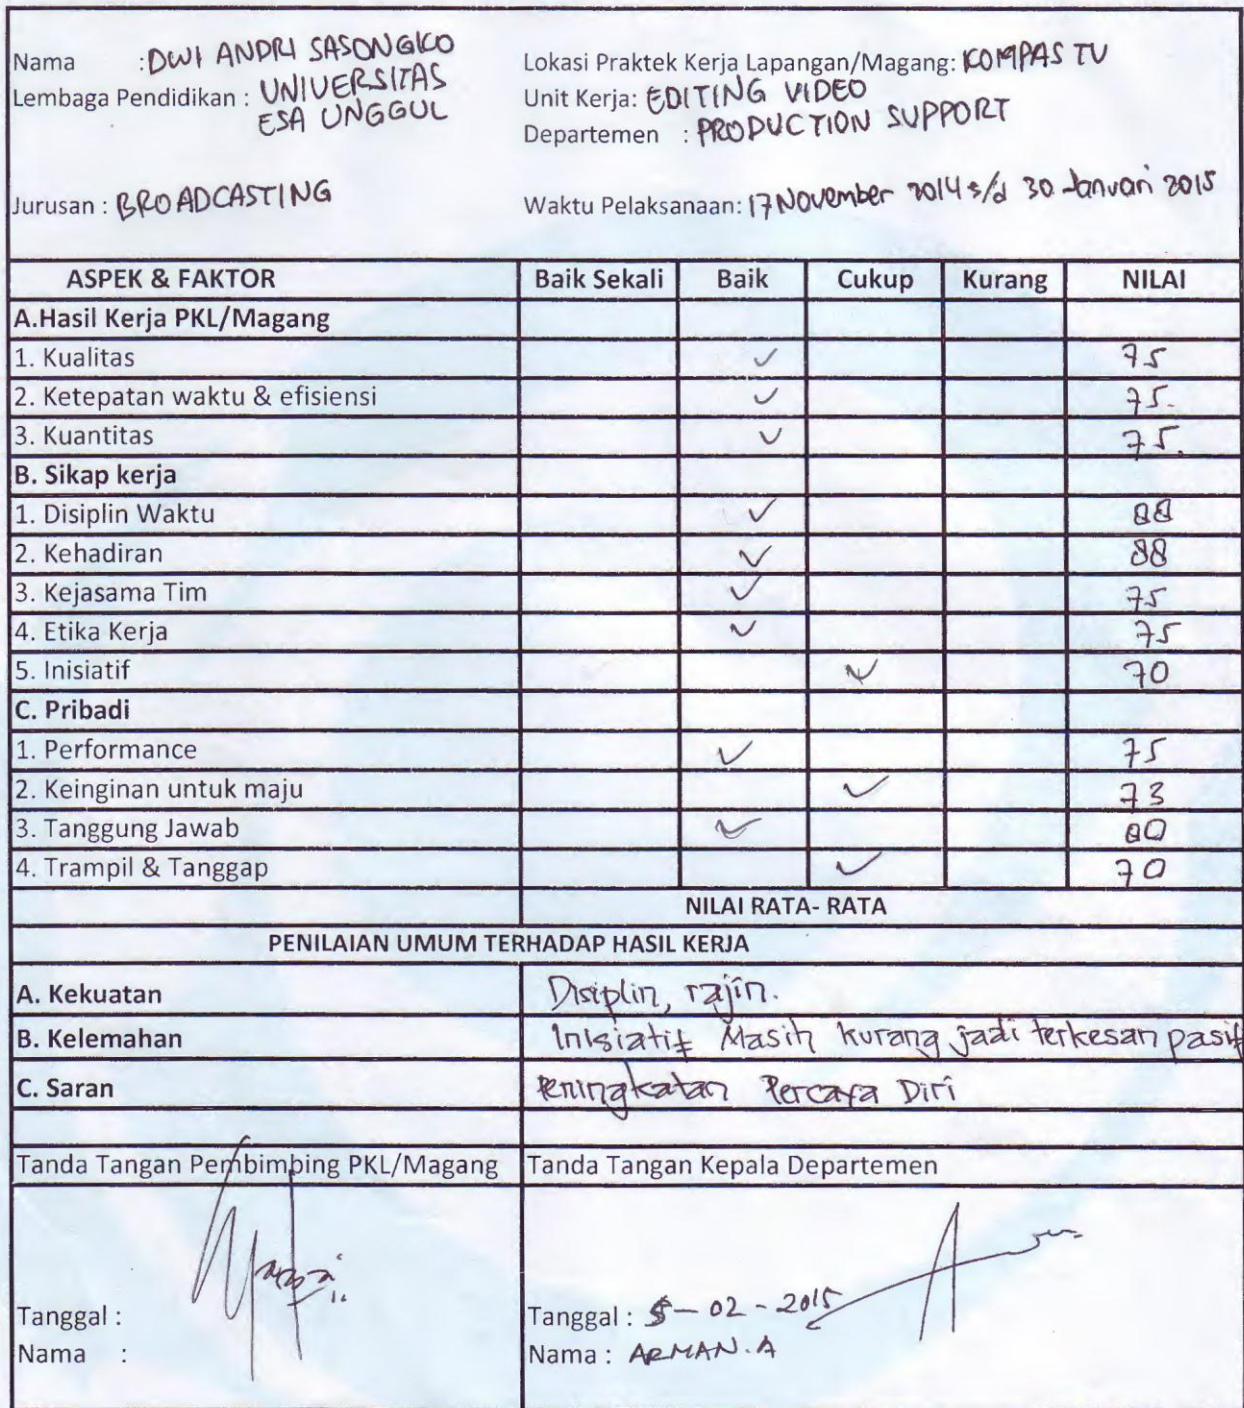 Nama : DWI ANDRI SASONGKO
Lembaga Pendidikan : UNIVERSITAS
ESA UNGGUL
Jurusan : BROADCASTING
Lokasi Praktek Kerja Lapangan/Magang: KOMPAS TV
Unit Kerja: EDITING VIDEO
Departemen : PRODUCTION SUPPORT
Waktu Pelaksanaan: 17 November 2014 s/d 30 Januari 2015
ASPEK & FAKTOR Baik Sekali Baik Cukup Kurang NILAI
A.Hasil Kerja PKL/Magang
1. Kualitas ✓ 75
2. Ketepatan waktu & efisiensi ✓ 75.
3. Kuantitas ✓ 75.
B. Sikap kerja
1. Disiplin Waktu ✓ 88
2. Kehadiran ✓ 88
3. Kejasama Tim ✓ 75
4. Etika Kerja ✓ 75
5. Inisiatif ✓ 70
C. Pribadi
1. Performance ✓ 75
2. Keinginan untuk maju ✓ 73
3. Tanggung Jawab ✓ 80
4. Trampil & Tanggap ✓ 70
NILAI RATA- RATA
PENILAIAN UMUM TERHADAP HASIL KERJA
A. Kekuatan Disiplin, rajin.
B. Kelemahan Inisiatif Masih kurang jadi terkesan pasif
C. Saran Peningkatan Percaya Diri
Tanda Tangan Pembimbing PKL/Magang Tanda Tangan Kepala Departemen
Tanggal : Tanggal : 5-02-2015
Nama : Nama : ARMAN.A